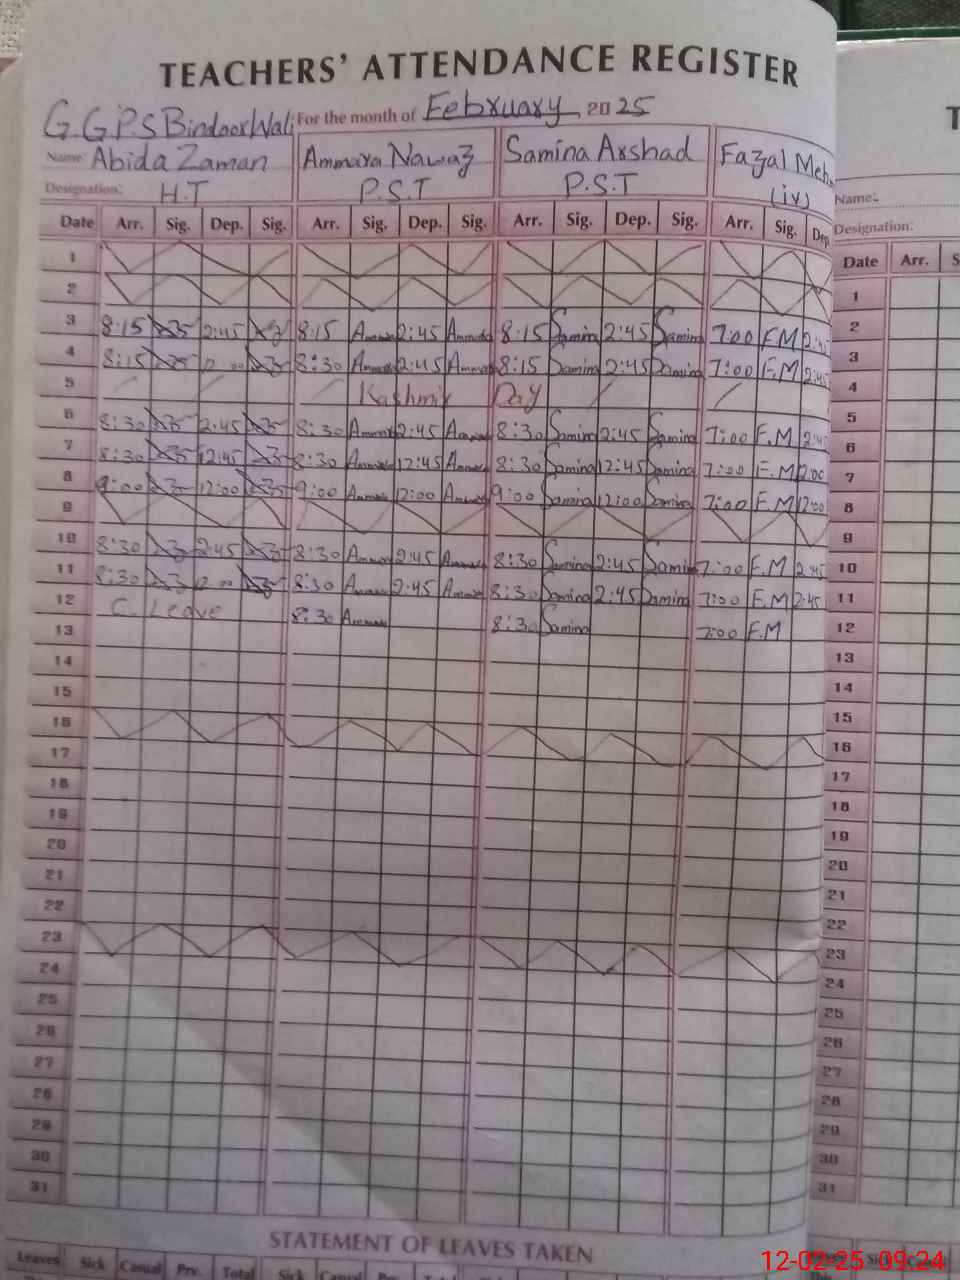 TEACHERS' ATTENDANCE REGISTER
G.G.P.S Bindoor Wali For the month of February 2025
Name: Abida Zaman Ammara Nawaz Samina Arshad Fazal Meh
Designation: H.T P.S.T P.S.T (iv)
Name:
Designation:
Date Arr. Sig. Dep. Sig. Arr. Sig. Dep. Sig. Arr. Sig. Dep. Sig. Arr. Sig. Dep
Date Arr. S
1
2
3 8:15 2:45 8:15 2:45 8:15 Samina 2:45 Samina 7:00 F.M 2:45
4 8:15 8:30 2:45 8:15 Samina 2:45 Samina 7:00 F.M 2:45
5 Kashmir Day
6 8:30 2:45 8:30 2:45 8:30 Samina 2:45 Samina 7:00 F.M 2:4
7 8:30 12:45 8:30 12:45 8:30 Samina 12:45 Samina 7:00 F.M 2:00
8 9:00 12:00 9:00 12:00 9:00 Samina 12:00 Samina 7:00 F.M 2:00
9
10 8:30 2:45 8:30 2:45 8:30 Samina 2:45 Samina 7:00 F.M 2:45
11 8:30 8:30 2:45 8:30 Samina 2:45 Samina 7:00 F.M 2:45
12 C. Leave 8:30 8:30 Samina 7:00 F.M
13
14
15
16
17
18
19
20
21
22
23
24
25
26
27
28
29
30
31
1
2
3
4
5
6
7
8
9
10
11
12
13
14
15
16
17
18
19
20
21
22
23
24
25
26
27
28
29
30
31
STATEMENT OF LEAVES TAKEN
Leaves Sick Casual Prv. Total Sick Casual
12-02-25 09:24